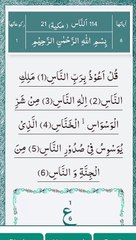 114 اَلنَّاس (مكية) 21
بِسْمِ اللّٰهِ الرَّحْمٰنِ الرَّحِيْمِ
قُلْ اَعُوْذُ بِرَبِّ النَّاسِ(1) مَلِكِ
النَّاسِ(2) اِلٰهِ النَّاسِ(3) مِنْ شَرِّ
الْوَسْوَاسِ ﳔ الْخَنَّاسِ(4) الَّذِیْ
یُوَسْوِسُ فِیْ صُدُوْرِ النَّاسِ(5) مِنَ
الْجِنَّةِ وَ النَّاسِ(6)
ع